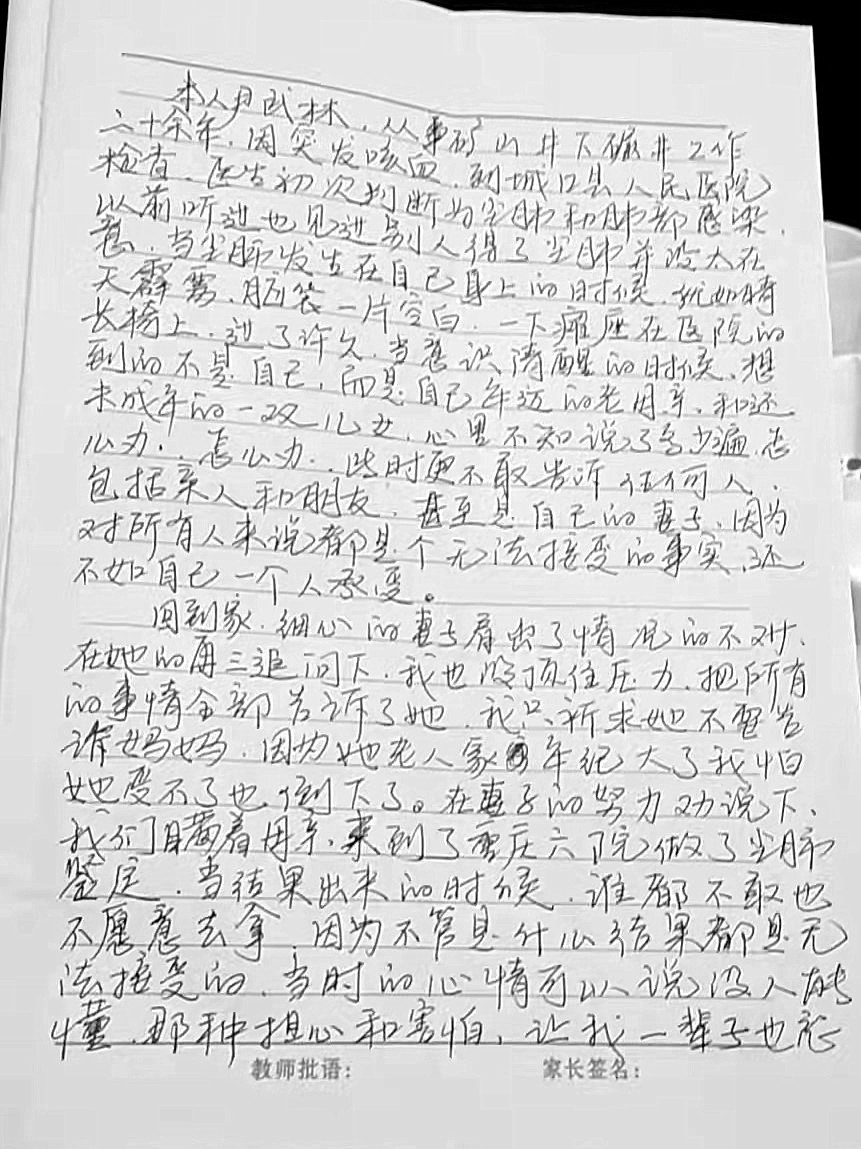 本人尹武林，从事矿山井下碛井工作
二十余年，因突发咳血，到城口县人民医院
检查，医生初次判断为尘肺和肺部感染，
以前听过也见过别人得了尘肺并没太在
意，当尘肺发生在自己身上的时候，就如晴
天霹雳，脑袋一片空白，一下瘫座在医院的
长椅上，过了许久，当意识清醒的时候，想
到的不是自己，而是自己年迈的老母亲，和还
未成年的一双儿女，心里不知说了多少遍，怎
么办．．怎么办．．此时更不敢告诉任何人，
包括亲人和朋友，甚至是自己的妻子，因为
对所有人来说都是个无法接受的事实，还
不如自己一个人承受。
回到家，细心的妻子看出了情况的不对，
在她的再三追问下，我也没顶住压力，把所有
的事情全部告诉了她，我只祈求她不要告
诉妈妈，因为她老人家年纪大了我怕
她受不了也倒下了。在妻子的努力劝说下，
我们瞒着母亲，来到了重庆六院做了尘肺
鉴定，当结果出来的时候，谁都不敢也
不愿意去拿，因为不管是什么结果都是无
法接受的，当时的心情可以说没人能
懂，那种担心和害怕，让我一辈子也忘
教师批语： 家长签名：